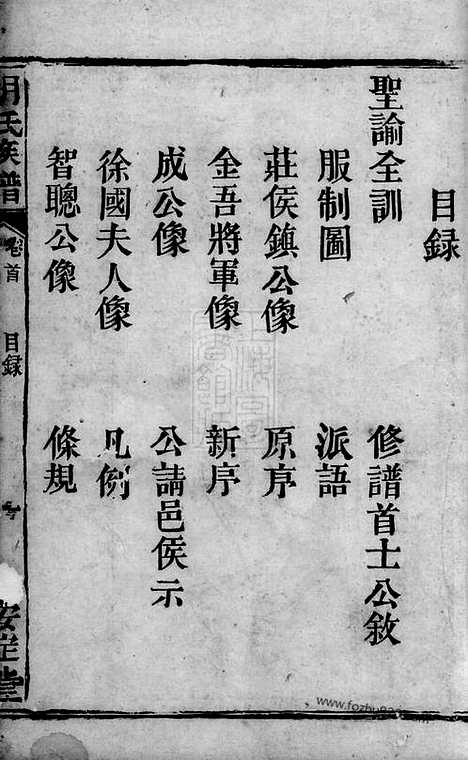 目録
聖諭全訓
修譜首士公敘
服制圖
派語
莊侯鎮公像
原序
金吾將軍像
新序
成公像
公請邑侯示
徐國夫人像
凡例
智聰公像
條規
氏族譜
卷首
目録
堂
www.fozhu920.com